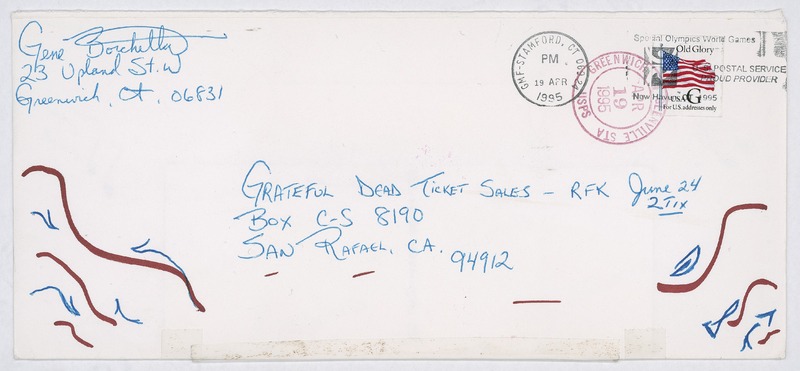 Gene Borchetta
23 Upland St. W
Greenwich, Ct. 06831
GMF-STAMFORD, CT 069 24
PM
19 APR
1995
GREENWICH
APR
19
1995
USPS
GLENVILLE STA
Special Olympics World Games
Old Glory
POSTAL SERVICE
PROUD PROVIDER
New Haven 1995
USA G
For U.S. addresses only
GRATEFUL DEAD TICKET SALES - RFK June 24
2 TIX
BOX C-S 8190
SAN RAFAEL, CA. 94912